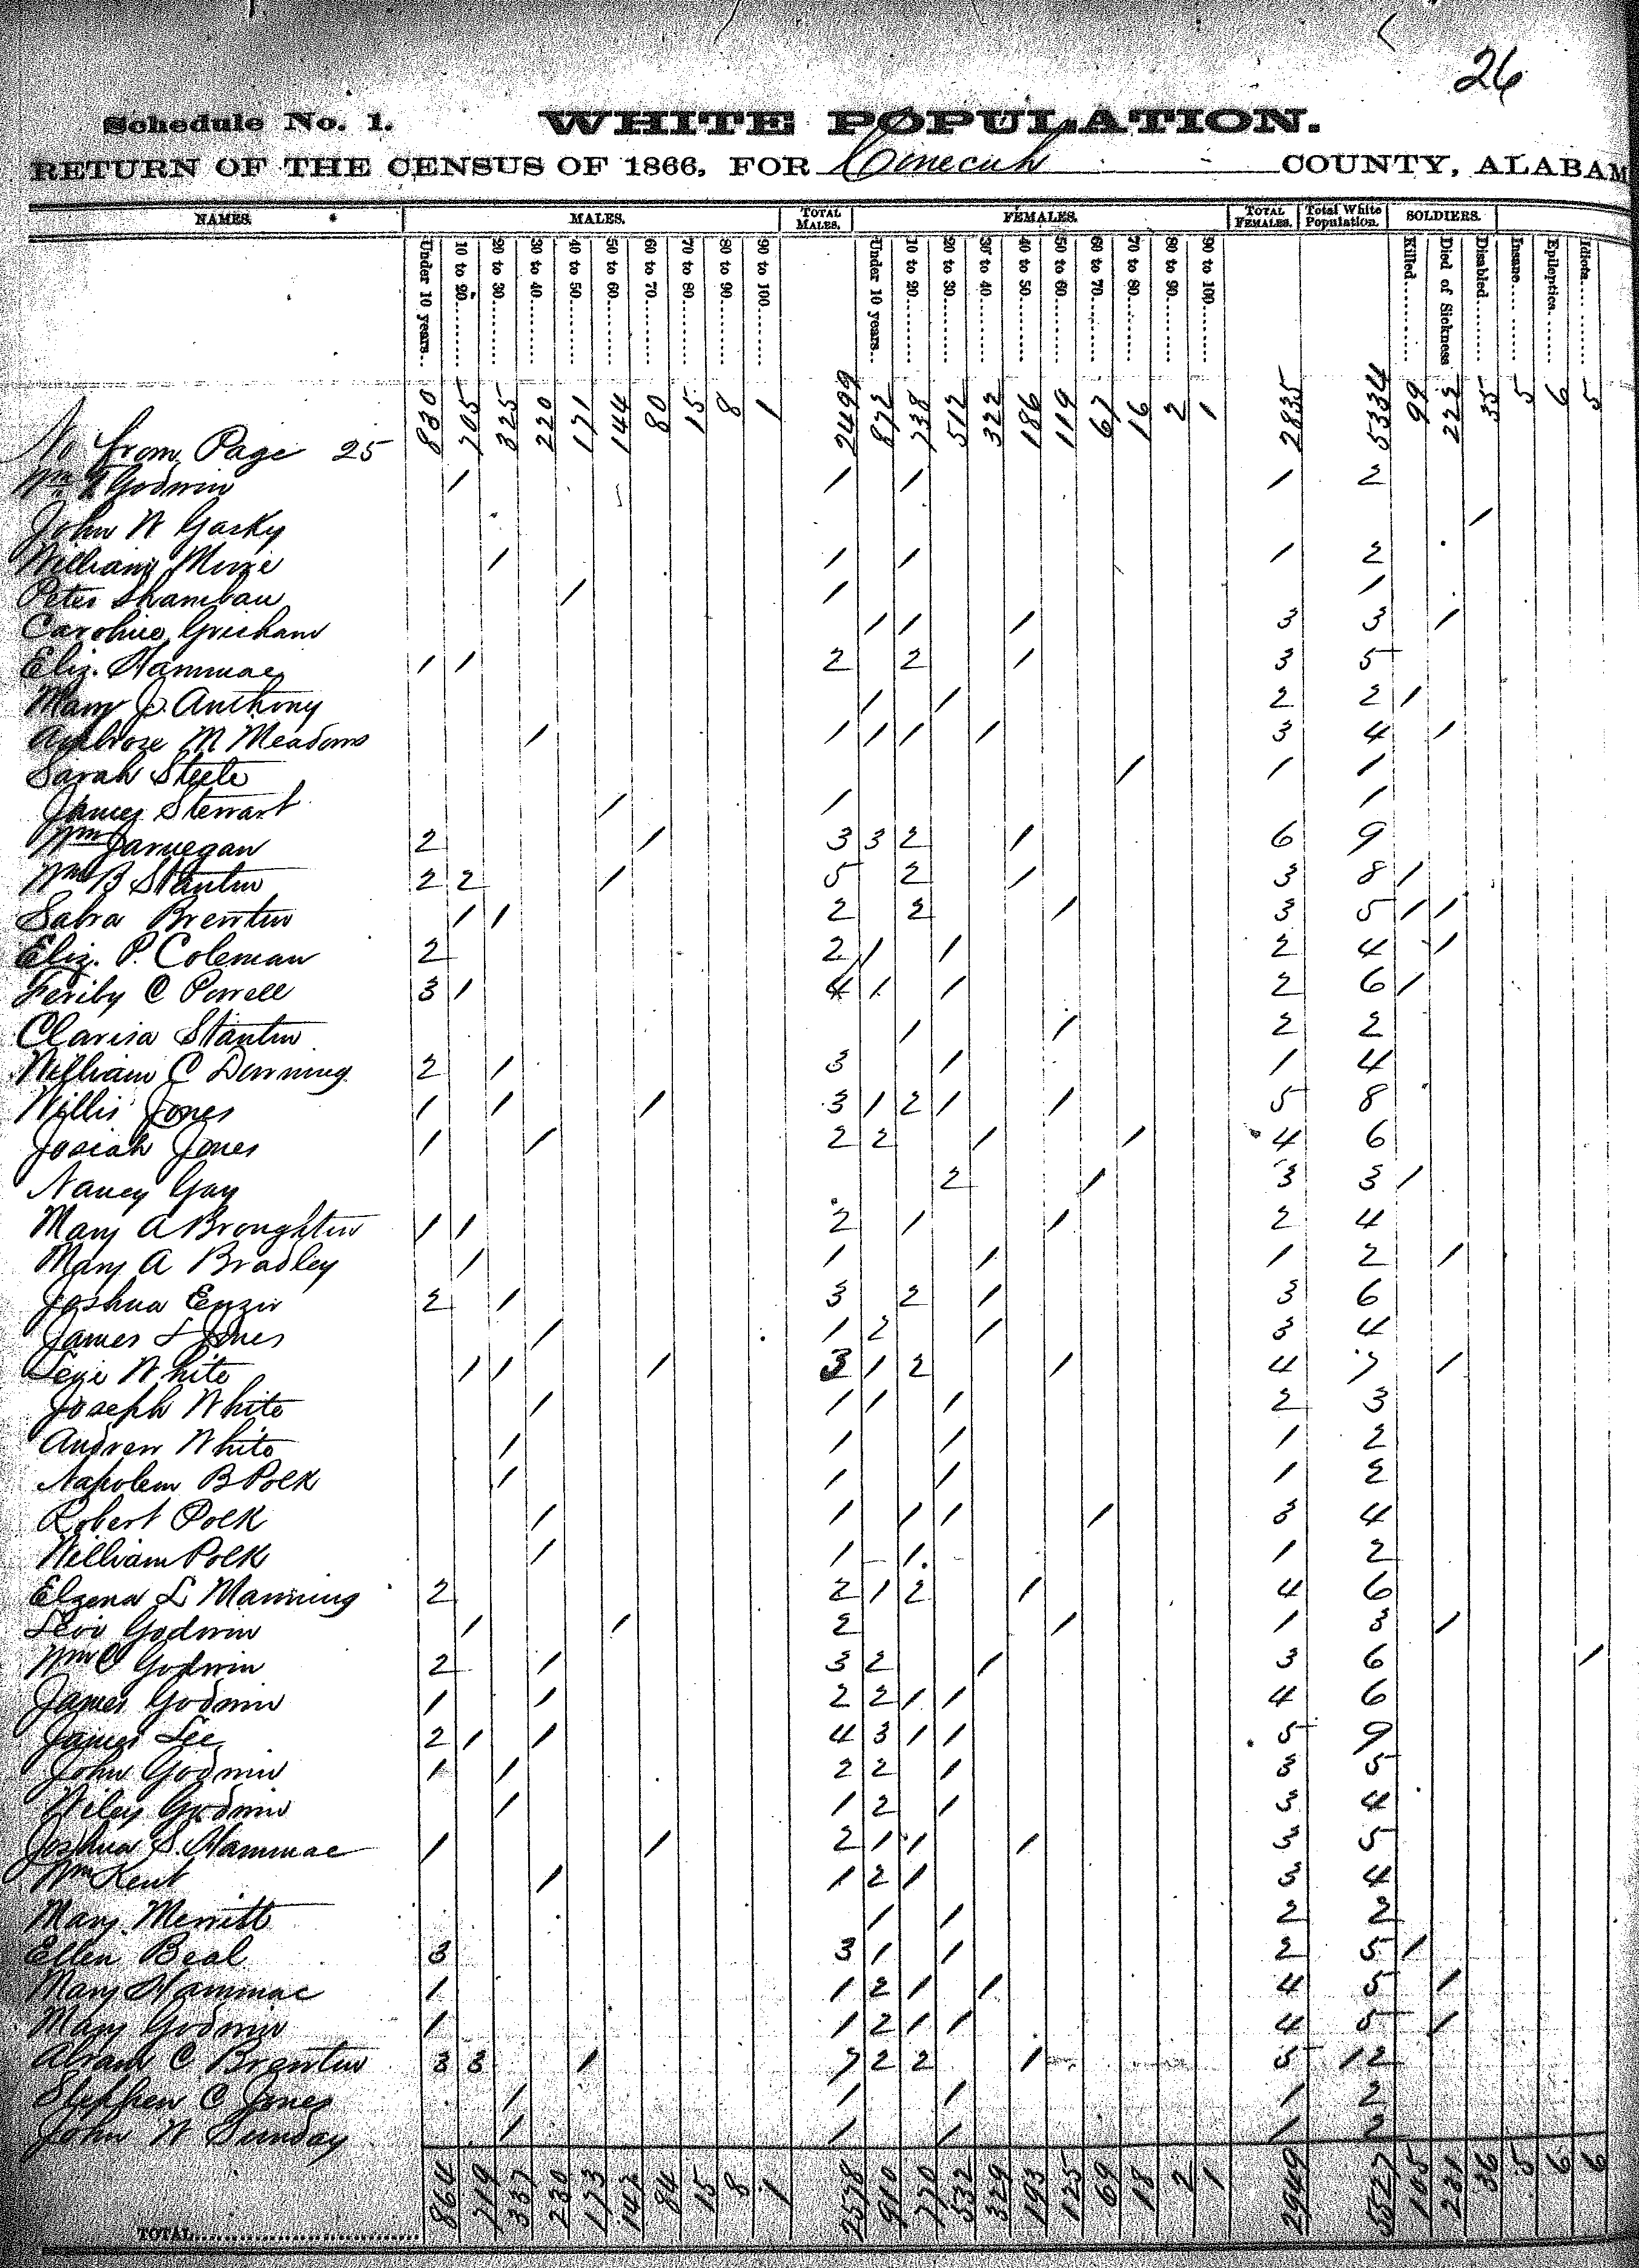 26
Schedule No. 1. WHITE POPULATION.
RETURN OF THE CENSUS OF 1866, FOR Conecuh COUNTY, ALABAM
NAMES. MALES. TOTAL MALES. FEMALES. TOTAL FEMALES. Total White Population. SOLDIERS.
Under 10 years.. 10 to 20...... 20 to 30...... 30 to 40...... 40 to 50...... 50 to 60...... 60 to 70...... 70 to 80...... 80 to 90...... 90 to 100...... Under 10 years.. 10 to 20...... 20 to 30...... 30 to 40...... 40 to 50...... 50 to 60...... 60 to 70...... 70 to 80...... 80 to 90...... 90 to 100...... Killed...... Died of Sickness Disabled...... Insane...... Epileptics...... Idiots......
No from Page 25 830 705 325 220 171 144 80 15 8 1 2499 872 738 512 322 186 119 67 16 2 1 2835 5334 99 223 35 5 6 5
Wm Godwin 1 1 1 1 2
John W Gasky 1
William Mize 1 1 1 1 2
Peter Shambau 1 1 1
Caroline Grisham 1 1 1 3 3 1
Eliz. Hammac 1 1 2 2 1 3 5
Mary J. Anthony 1 1 2 2 1
Ambrose M Meadows 1 1 1 1 1 3 4 1
Sarah Steele 1 1 1
James Stewart 1 1 1
Wm Jarnegan 2 1 3 3 2 1 6 9
Wm B Stanton 2 2 1 5 2 1 3 8 1
Sabra Brewton 1 1 2 2 1 3 5 1 1
Eliz. P. Coleman 2 2 1 1 2 4 1
Feriby C Powell 3 1 4 1 1 2 6 1
Clarisa Stanton 1 1 2 2
William C Downing 2 1 3 1 1 4
Willis Jones 1 1 1 3 1 2 1 1 5 8
Josiah Jones 1 1 2 2 1 1 4 6
Nancy Gay 2 1 3 3 1
Mary A Broughton 1 1 2 1 1 2 4
Mary A Bradley 1 1 1 1 2 1
Joshua Enzor 2 1 3 2 1 3 6
James L Jones 1 1 2 1 3 4
White 1 1 1 3 1 2 1 4 7 1
Joseph White 1 1 1 1 2 3
Andrew White 1 1 1 1 2
Napoleon B Polk 1 1 1 1 2
Robert Polk 1 1 1 1 1 3 4
William Polk 1 1 1 1 2
Elzena L Manning 2 2 1 2 1 4 6
Levi Godwin 1 1 2 1 1 3 1
Wm C Godwin 2 1 3 2 1 3 6 1
James Godwin 1 1 2 2 1 1 4 6
James Lee 2 1 1 4 3 1 1 5 9
John Godwin 1 1 2 2 1 3 5
Wiley Godwin 1 1 2 1 3 4
Joshua S. Hammac 1 1 2 1 1 1 3 5
Wm Kent 1 1 2 1 3 4
Mary Merritt 1 1 2 2
Ellen Beal 3 3 1 1 2 5 1
Mary Hammac 1 1 2 1 1 4 5 1
Mary Godwin 1 1 2 1 1 4 5 1
Abram C Brewton 3 3 1 7 2 2 1 5 12
Stephen C Jones 1 1 1 1 2
John W Sunday 1 1 1 1 2
TOTAL...... 864 719 337 230 173 147 84 15 8 1 2578 910 770 532 329 193 125 69 18 2 1 2949 5527 105 231 36 5 6 6